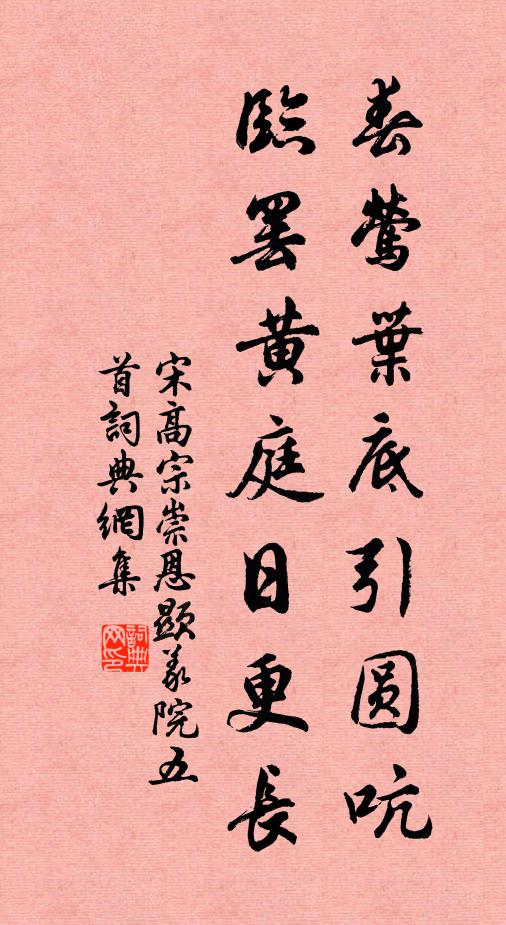 春鶯葉底引圓吭
臨罷黃庭日更長
宋高宗崇恩顯義院五
首詞典網集
詞典网印